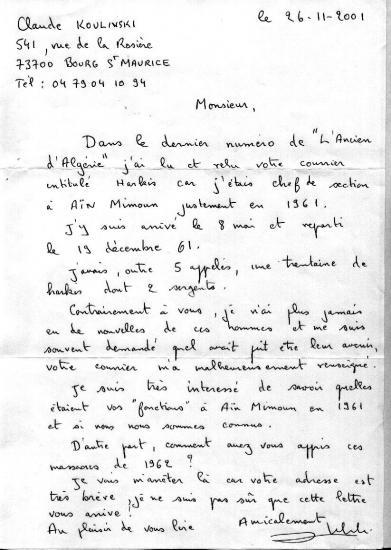 Claude KOULINSKI
le 26-11-2001
541, rue de la Rosière
73700 BOURG St MAURICE
Tél : 04 79 04 10 94
Monsieur,
Dans le dernier numéro de "L'Ancien
d'Algérie" j'ai lu et relu votre courrier
intitulé Harkis car j'étais chef de section
à AÏN Mimoun justement en 1961.
J'y suis arrivé le 8 mai et reparti
le 19 décembre 61.
J'avais, outre 5 appelés, une trentaine de
harkis dont 2 sergents.
Contrairement à vous, je n'ai plus jamais
eu de nouvelles de ces hommes et me suis
souvent demandé quel avait pût être leur avenir,
votre courrier m'a malheureusement renseigné.
Je suis très interessé de savoir quelles
étaient vos "fonctions" à Aïn Mimoun en 1961
et si nous nous sommes connus.
D'autre part, comment avez vous appris ces
massacres de 1962 ?
Je vais m'arrêter là car votre adresse est
très brève, je ne suis pas sûr que cette lettre
vous arrive !
Au plaisir de vous lire Amicalement